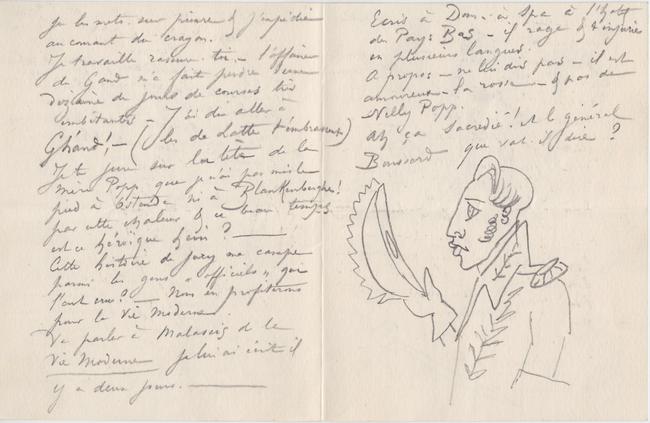 Je les mets sur pierre & j'expédie
au courant du crayon.
Je travaille rassure-toi. L'affaire
de Gand m'a fait perdre une
dizaine de jours de courses très
embêtantes - J'ai dû aller à
Ghând! - (les de Latte t'embrassent)
Je te jure sur la tête de la
mère Popp que je n'ai pas mis le
pied à Ostende ni à Blankenberghe!
par cette chaleur & ce beau temps
est ce héroïque hein? —
Cette histoire de Jury me campe
parmi les gens "officiels" que
l'eut cru? — Nous en profiterons
pour la Vie Moderne.
Va parler à Malassis de la
Vie Moderne je lui ai écrit il
y a deux jours. —
Ecris à Dom - à Spa à l'Hotel
des Pays Bas - il rage & t'injurie
en plusieurs langues.
A propos - ne lui dis pas - il est
amoureux - la rosse - & pas de
Nelly Popp.
Ah ça Sacredié! & le général
Boussard que va-t-il dire?